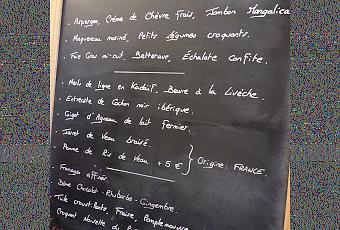 . Asperges, Crème de Chèvre Frais, Jambon Mangalica
. Maquereau mariné, Petits Légumes croquants.
. Foie Gras mi-cuit, Betterave, Échalote Confite.
. Merlu de ligne en Kadaïf, Beurre à la Livèche.
. Entrecôte de Cochon noir ibérique.
. Gigot d'Agneau de lait Fermier.
. Jarret de Veau braisé.
. Pomme de Ris de Veau + 5 €
Origine: FRANCE.
. Fromage affiné
. Dôme Chocolat - Rhubarbe - Gingembre.
Tuile croustillante, Fraise, Pamplemousse
Croquant Noisette